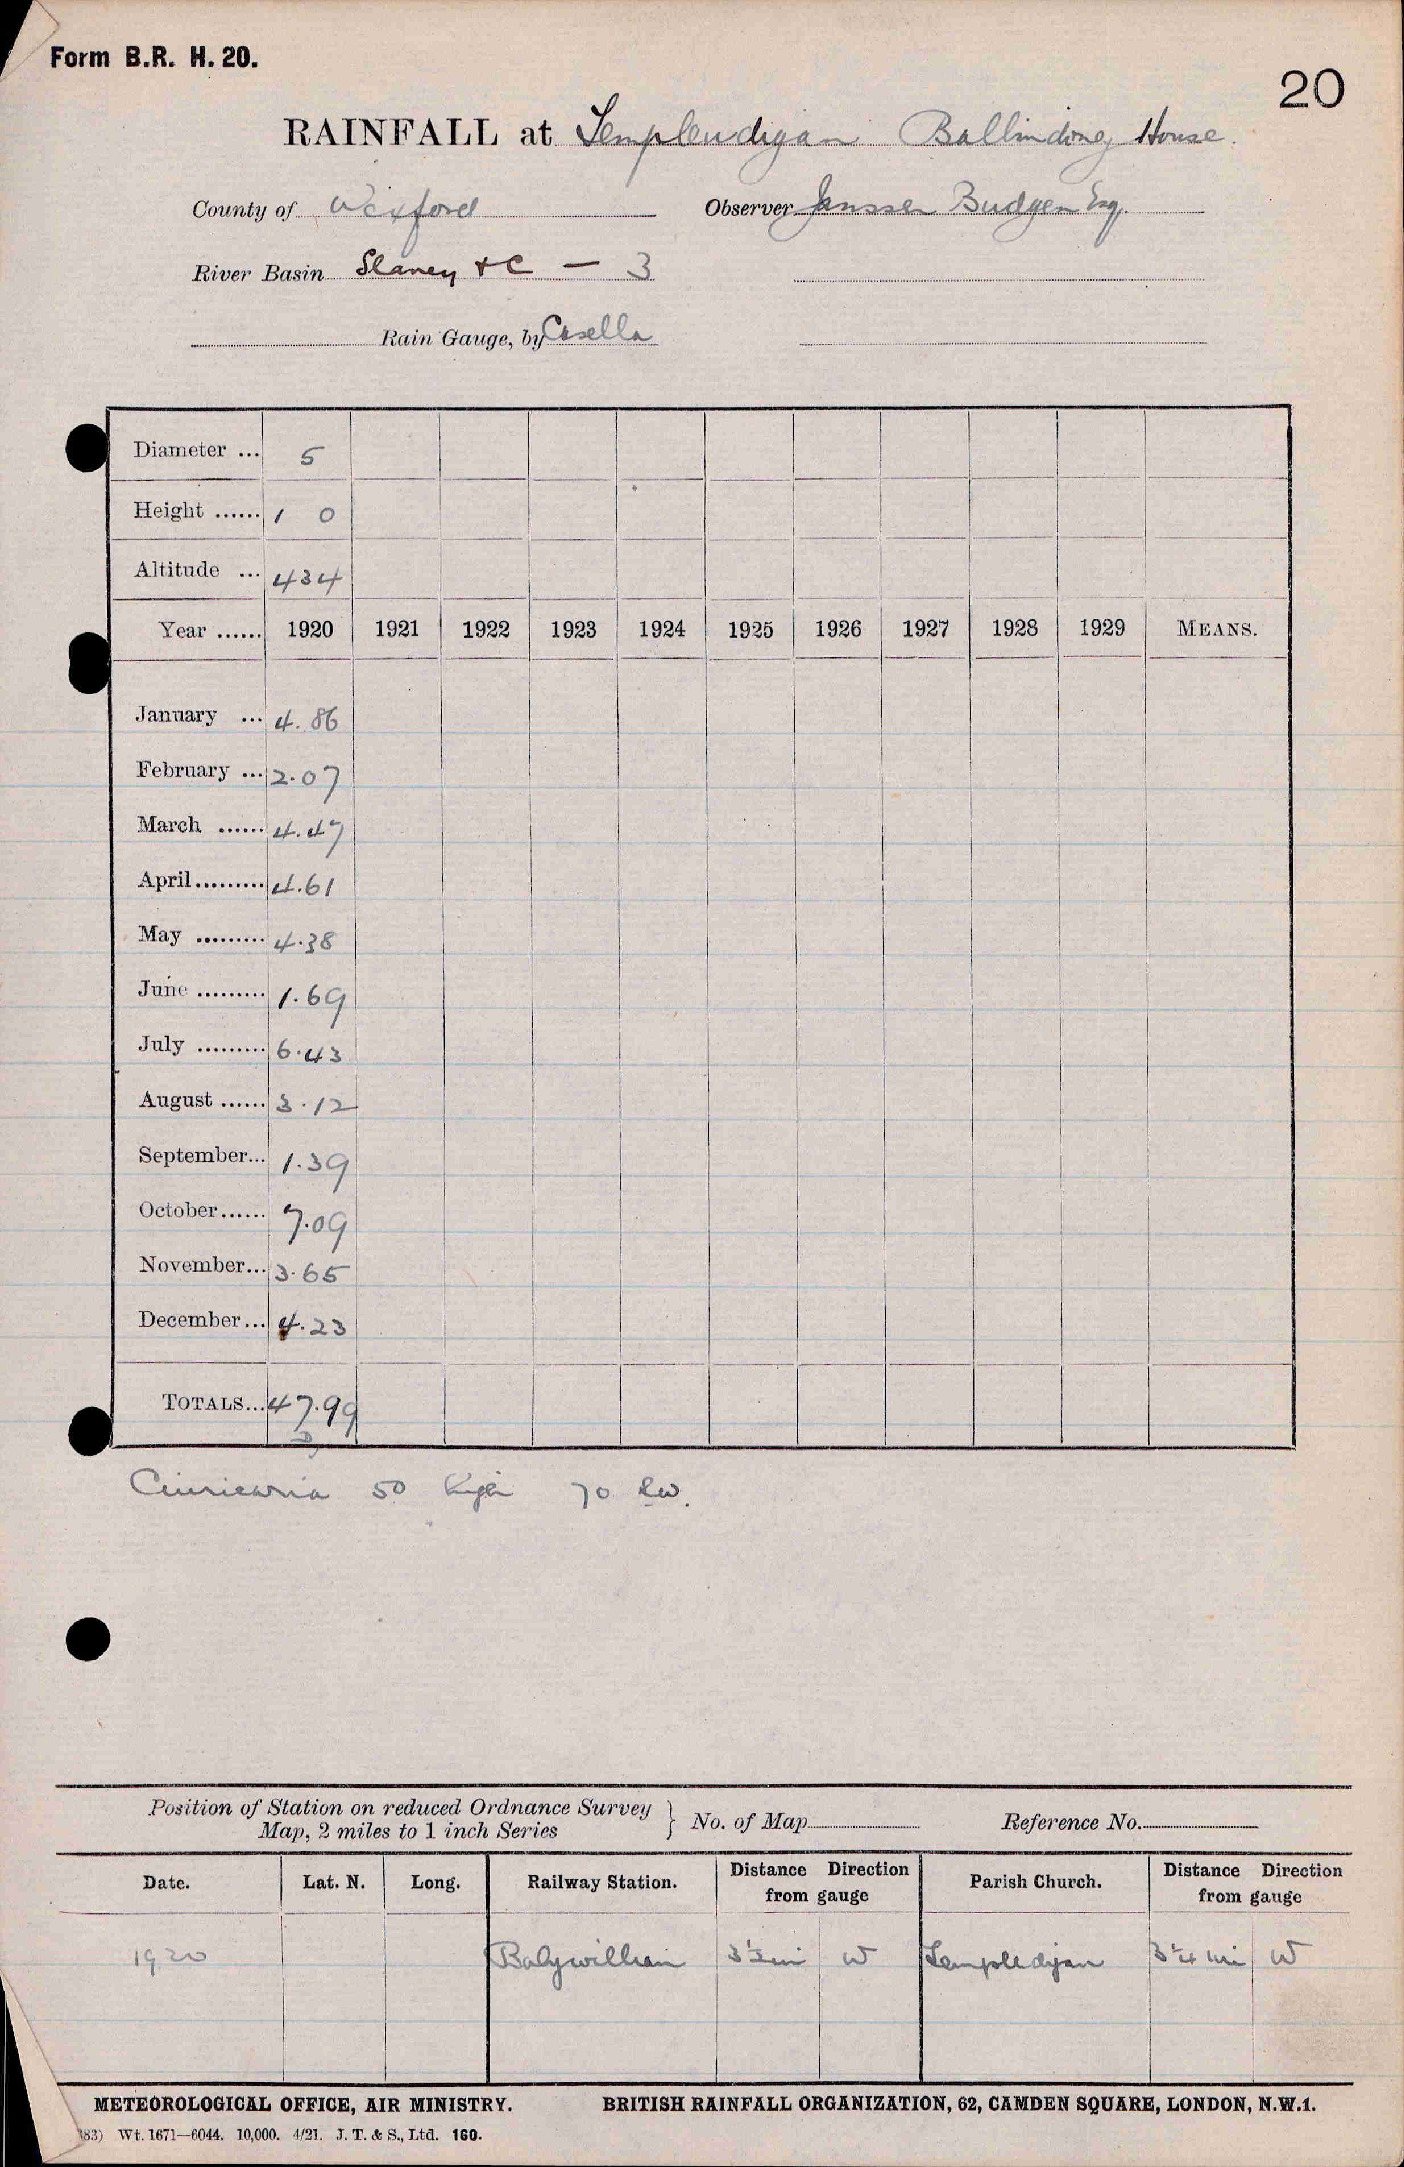 Form B.R. H. 20.
20
RAINFALL at Templeudigan Ballindoney House.
County of Wexford Observer Janssen Budgen Esq.
River Basin Slaney & C — 3
Rain Gauge, by Casella
Diameter ... 5
Height ...... 1 0
Altitude ... 434
Year ...... 1920 1921 1922 1923 1924 1925 1926 1927 1928 1929 MEANS.
January ... 4.86
February ... 2.07
March ...... 4.47
April......... 4.61
May ......... 4.38
June ......... 1.69
July ......... 6.43
August ...... 3.12
September... 1.39
October...... 7.09
November... 3.65
December... 4.23
TOTALS... 47.99
50 70
Position of Station on reduced Ordnance Survey } No. of Map Reference No.
Map, 2 miles to 1 inch Series
Date. Lat. N. Long. Railway Station. Distance Direction from gauge Parish Church. Distance Direction from gauge
1920 Balywilliam 3½ mi W Templedigan 3¼ mi W
METEOROLOGICAL OFFICE, AIR MINISTRY. BRITISH RAINFALL ORGANIZATION, 62, CAMDEN SQUARE, LONDON, N.W.1.
83) Wt. 1671—6044. 10,000. 4/21. J. T. & S., Ltd. 160.